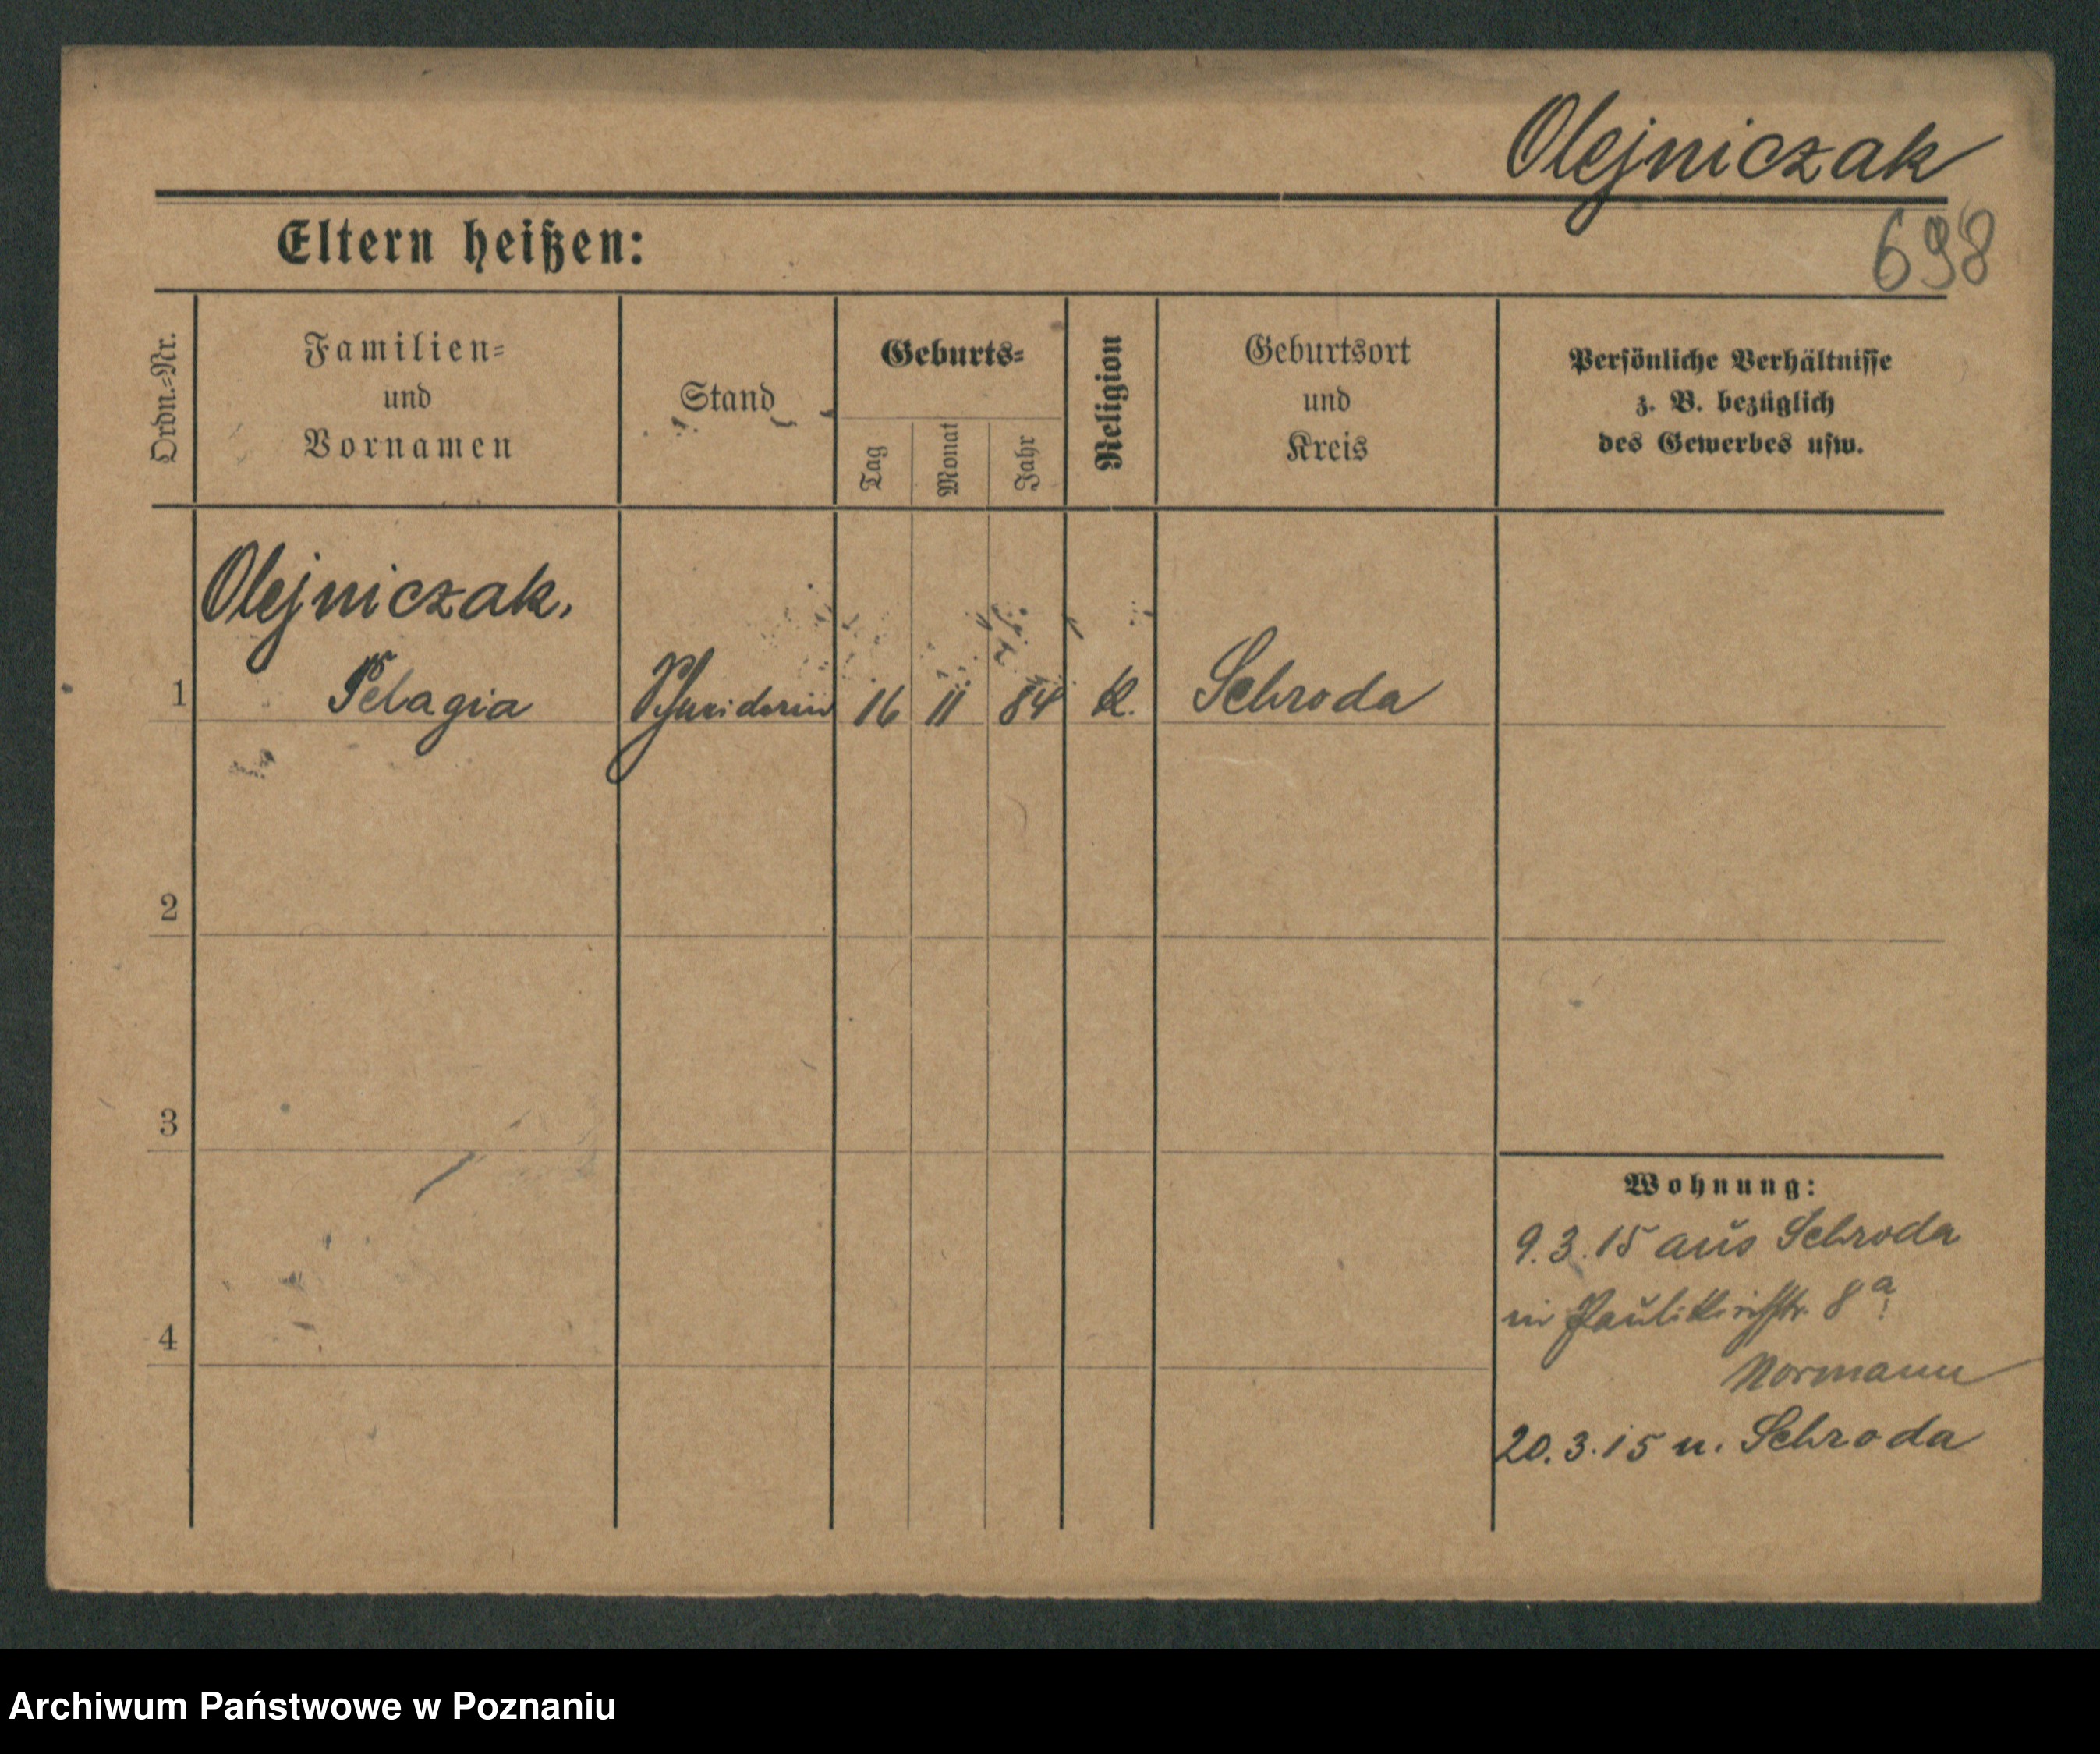 Olejniczak
698
Eltern heißen:
Ordn.-Nr.
Familien-
und
Vornamen
Stand
Geburts-
Tag
Monat
Jahr
Religion
Geburtsort
und
Kreis
Persönliche Verhältnisse
z. B. bezüglich
des Gewerbes usw.
Olejniczak,
1 Pelagia Schneiderin 16 11 84 k. Schroda
2
3
4
Wohnung:
9.3.15 aus Schroda
in Paulikirchstr. 8a
Normann
20.3.15 n. Schroda
Archiwum Państwowe w Poznaniu